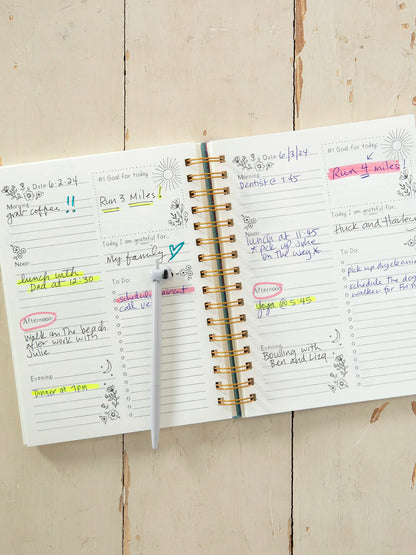 Date: 6-2-24
Morning:
grab coffee !!
Noon:
lunch with
Dad at 12:30
Afternoon:
Walk on the beach
after work with
Julie
Evening:
Dinner at 7PM
#1 Goal for today:
Run 3 Miles!
Today I am grateful for:
My family
To Do:
schedule
call
Date: 6/3/24
Morning:
Dentist @ 7:45
Noon:
lunch at 11:45
* Pick up June
on the way *
Afternoon:
Yoga @ 5:45
Evening:
Bowling with
Ben and Liza
#1 Goal for today:
Run 4 miles!
Today I am grateful for:
Huck and
To Do:
pick up dry cleaning
schedule the dog
walker for Fri.